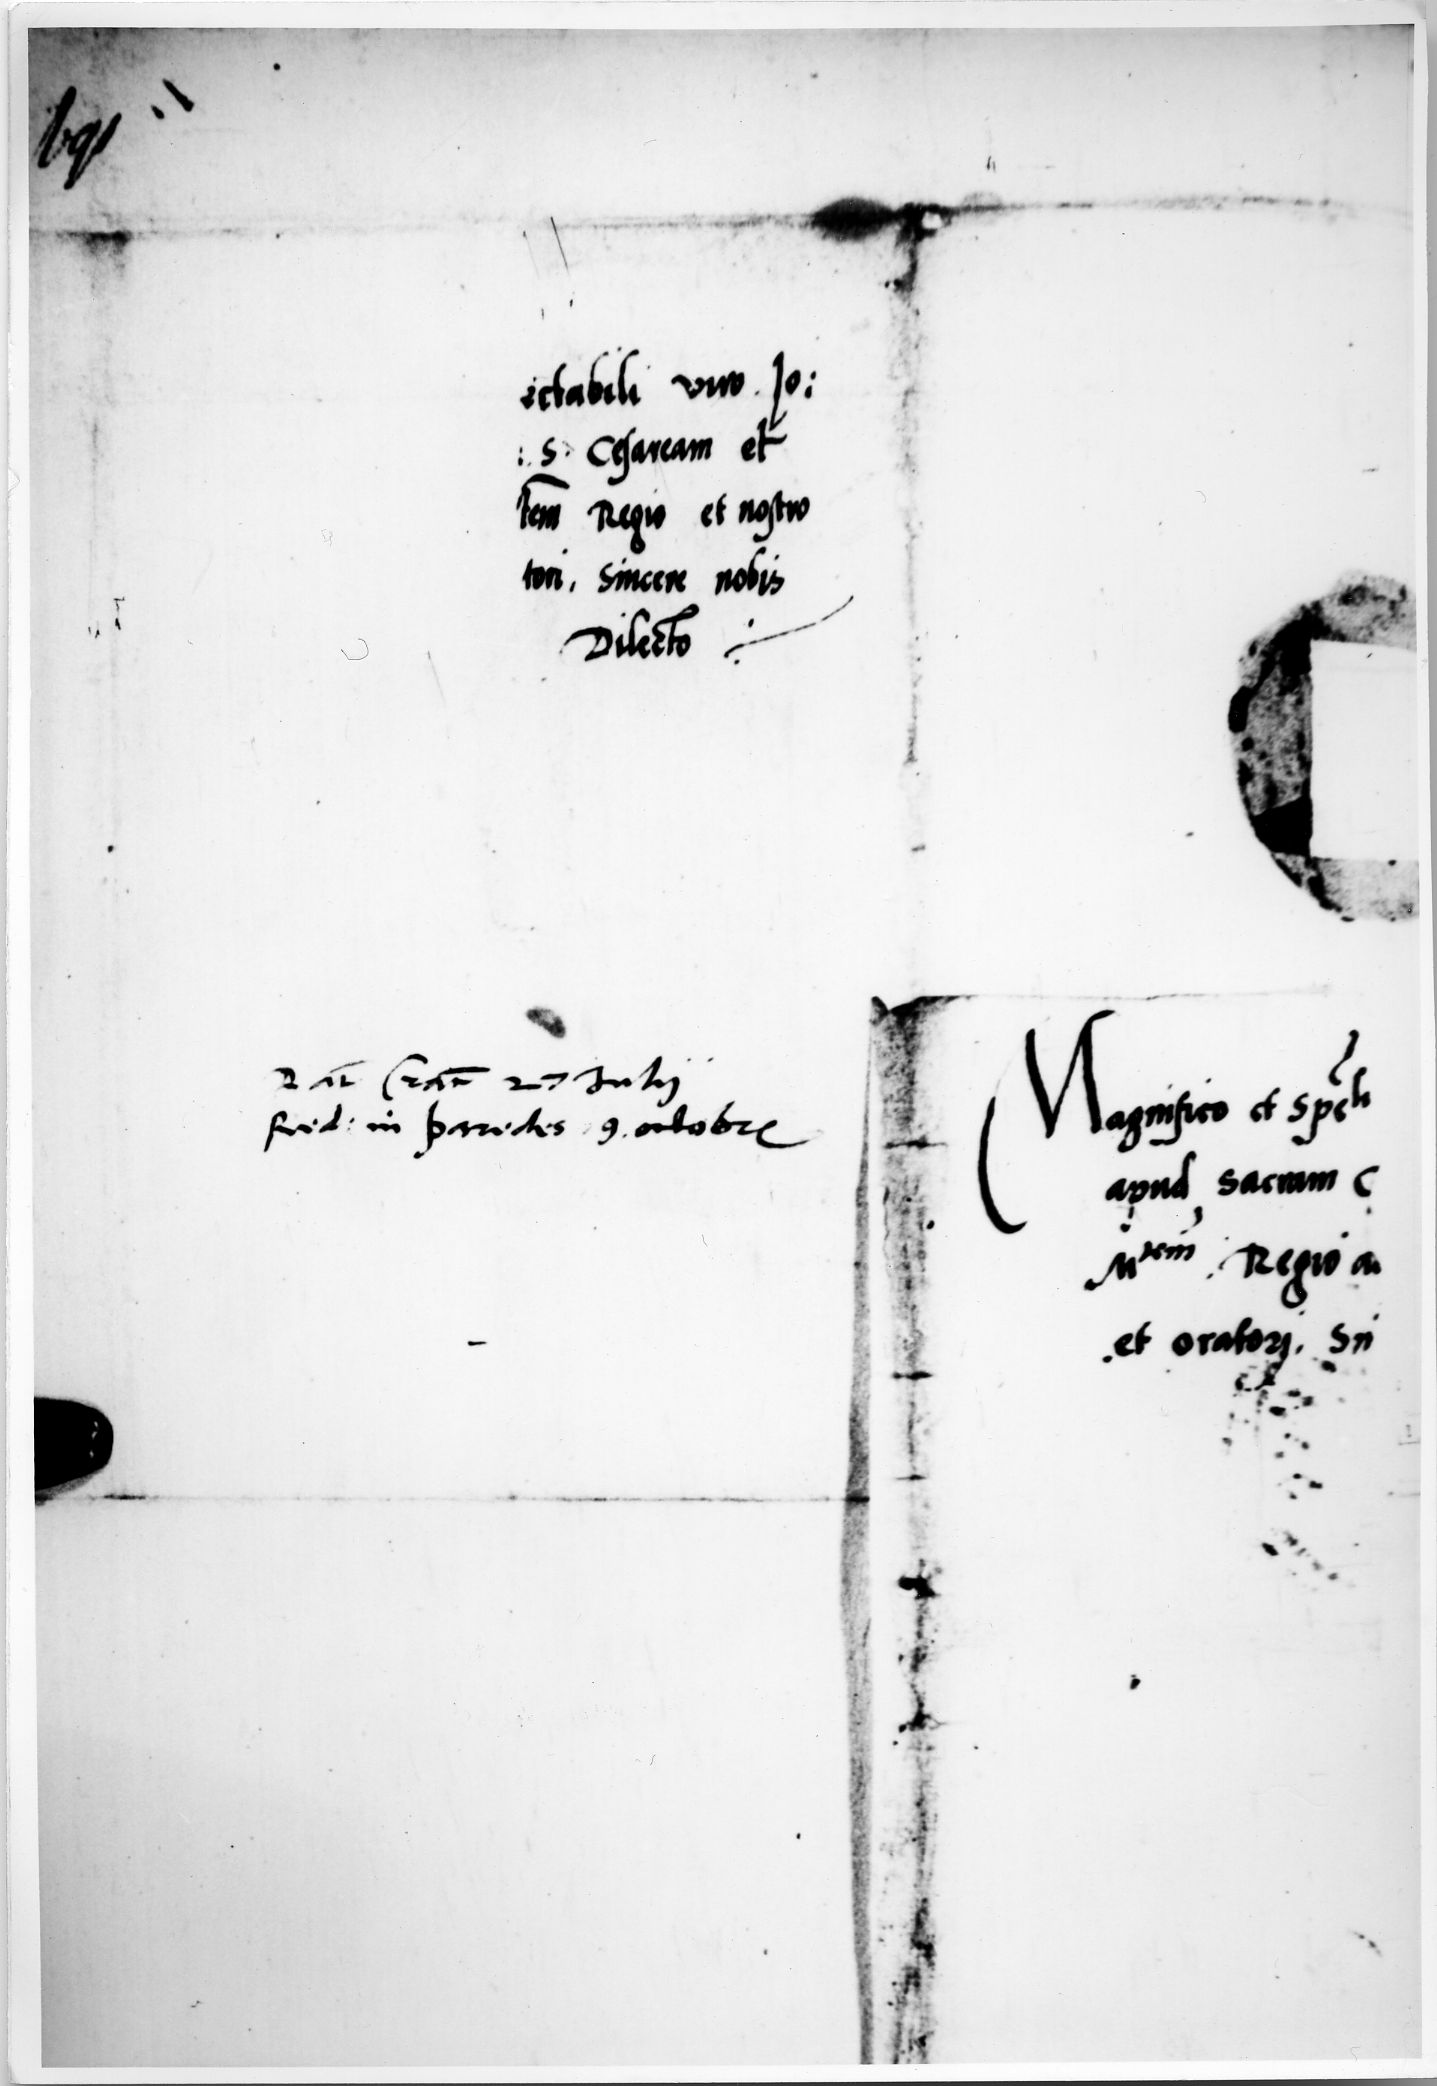 ectabili viro. Jo:
: S. Cesaream et
tem Regio et nostro
tori, sincere nobis
Dilecto
27 Julij
in paredes 9. octobre
Magnifico et Spe li
apud sacram C
M tem. Regio a
et oratori, Sn